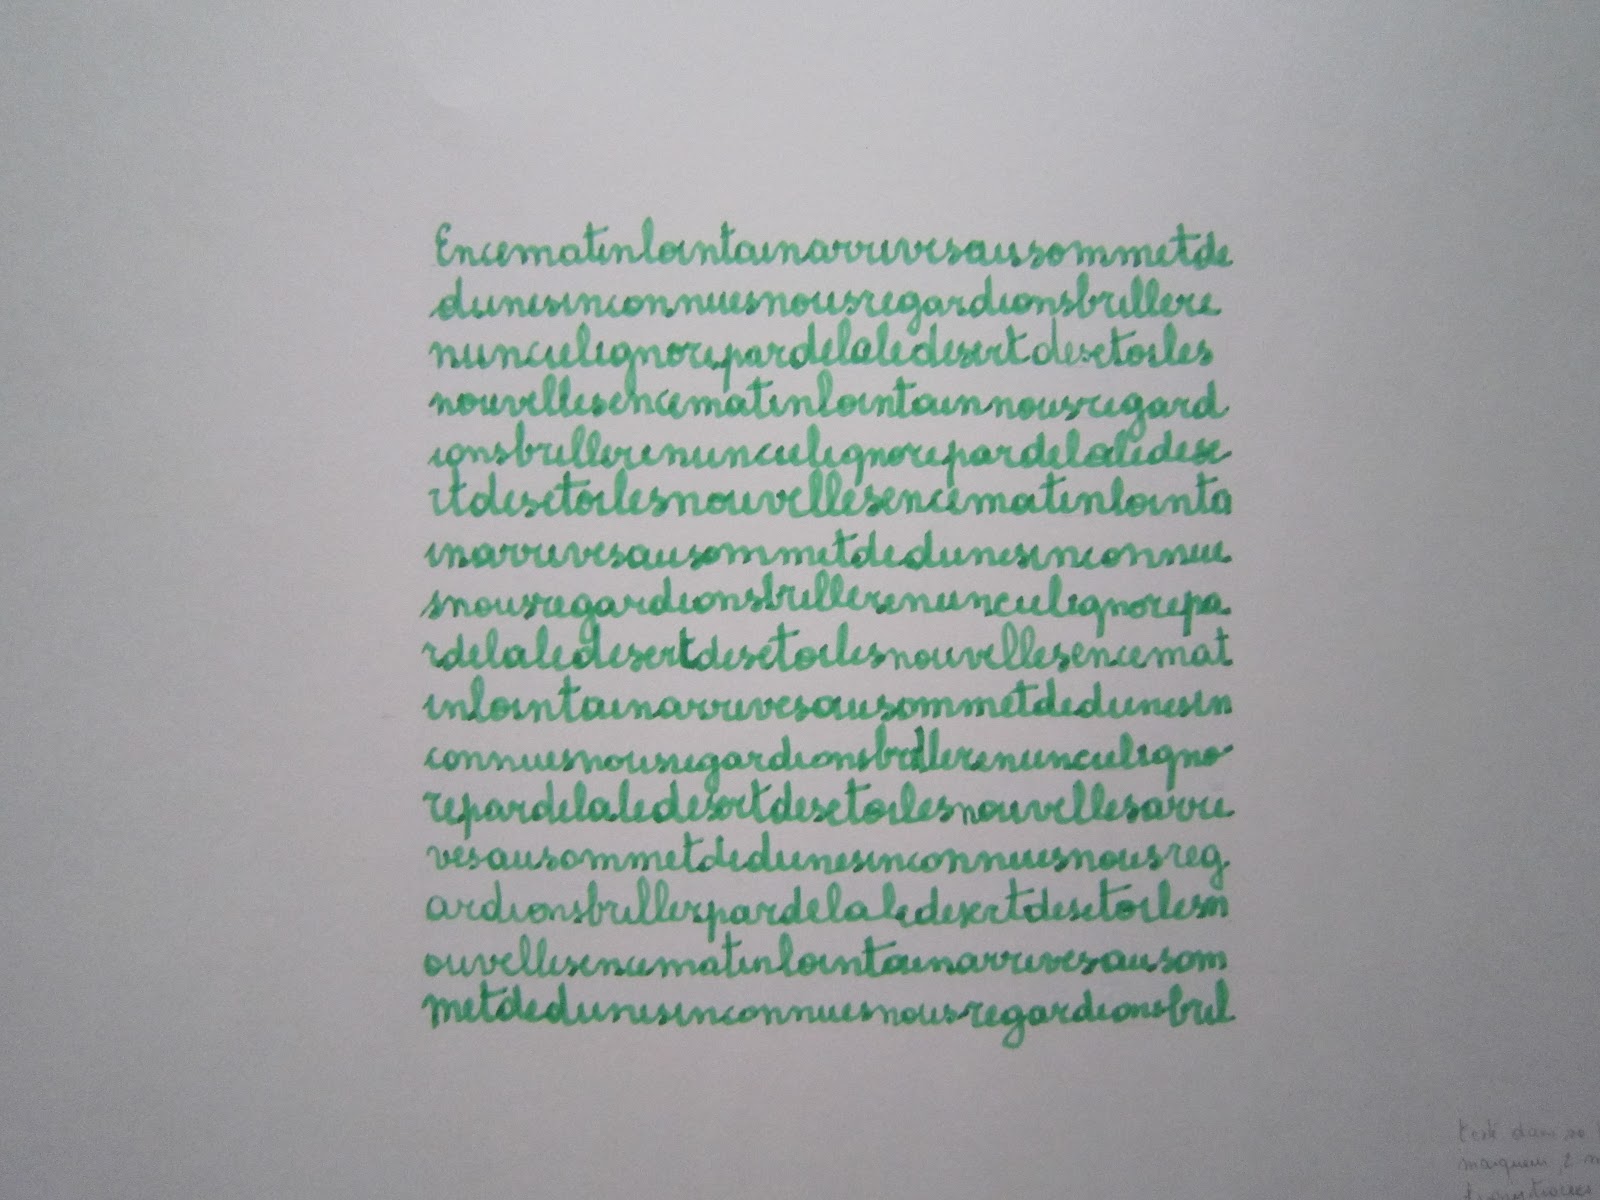 Encematinlointainarrivesausommetde
dunesinconnuesnousregardionsbrillere
nuncielignorepardelaledesertdesetoiles
nouvellesencematinlointainnousregard
ionsbrillerenuncielignorepardelaledese
rtdesetoilesnouvellesencematinlointa
inarrivesausommetdedunesinconnue
snousregardionsbrillerenuncielignorepa
rdelaledesertdesetoilesnouvellesencemat
inlointainarrivesausommetdedunesin
connuesnousregardionsbrillerenuncieligno
repardelaledesertdesetoilesnouvellesarri
vesausommetdedunesinconnuesnousreg
ardionsbrillerpardelaledesertdesetoilesn
ouvellesencematinlointainarrivesausom
metdedunesinconnuesnousregardionsbril
dans